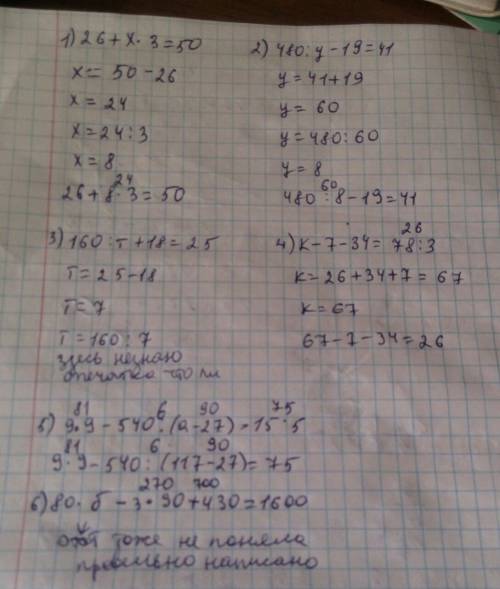 1) 26 + x · 3 = 50
x = 50 - 26
x = 24
x = 24 : 3
x = 8
24
26 + 8 · 3 = 50
2) 480 : y - 19 = 41
y = 41 + 19
y = 60
y = 480 : 60
y = 8
60
480 : 8 - 19 = 41
3) 160 : т + 18 = 25
т = 25 - 18
т = 7
т = 160 : 7
здесь незнаю
опечатка что ли
26
4) к - 7 - 34 = 78 : 3
к = 26 + 34 + 7 = 67
к = 67
67 - 7 - 34 = 26
81 6 90 75
5) 9 · 9 - 540 : (а - 27) = 15 · 5
81 6 90
9 · 9 - 540 : (117 - 27) = 75
270 700
6) 80 · б - 3 · 90 + 430 = 1600
тоже не поняла
правильно написано